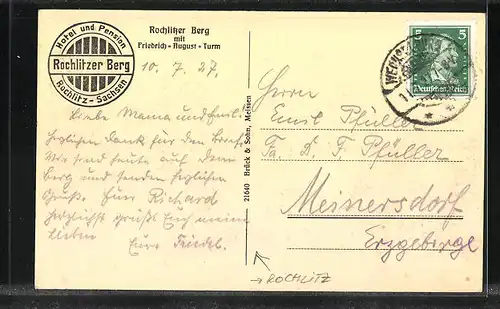 Hotel und Pension
Rochlitzer Berg
Rochlitz - Sachsen
Rochlitzer Berg
mit
Friedrich - August - Turm
10. 7. 27.
Liebe Mama und
herzlichen Dank für den Brief.
Wir sind heute auf dem
Berg und senden herzliche
Grüße. Euer Richard
Herzlichst grüßt Euch meine
Lieben
Eure Friedel.
21640 Brück & Sohn, Meissen
5 5
Deutsches Reich
Herrn
Emil Pfüller
Fa. D. F. Pfüller
Meinersdorf
Erzgebirge
→ ROCHLITZ